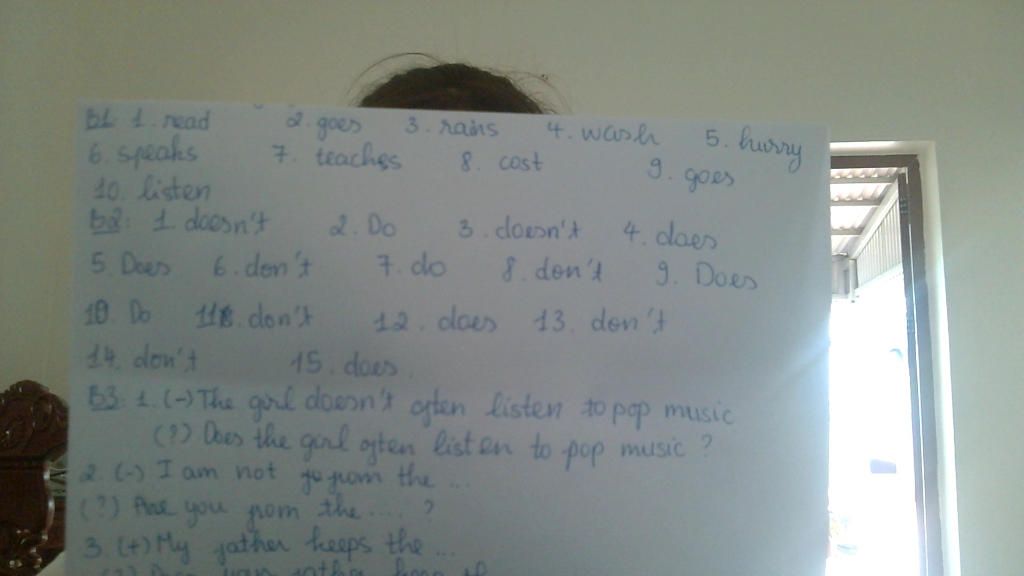 B1: 1. read 2. goes 3. rains 4. wash 5. hurry
6. speaks 7. teaches 8. cost 9. goes
10. listen
B2: 1. doesn't 2. Do 3. doesn't 4. does
5. Does 6. don't 7. do 8. don't 9. Does
10. Do 11. don't 12. does 13. don't
14. don't 15. does.
B3: 1. (-) The girl doesn't often listen to pop music
(?) Does the girl often listen to pop music ?
2. (-) I am not from the ...
(?) Are you from the .... ?
3. (+) My father keeps the ...
(?) Does your father keep th